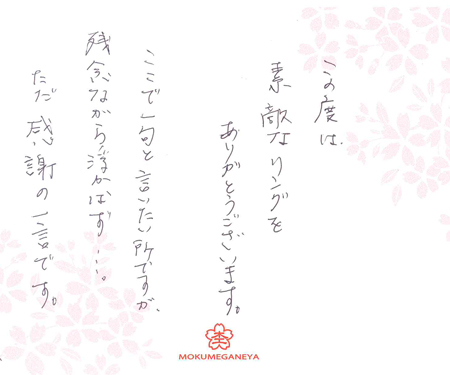 この度は、
素敵なリングを
ありがとうございます。
ここで一句と言いたい所ですが、
残念ながら浮かばず…。
ただ感謝の一言です。
MOKUMEGANEYA